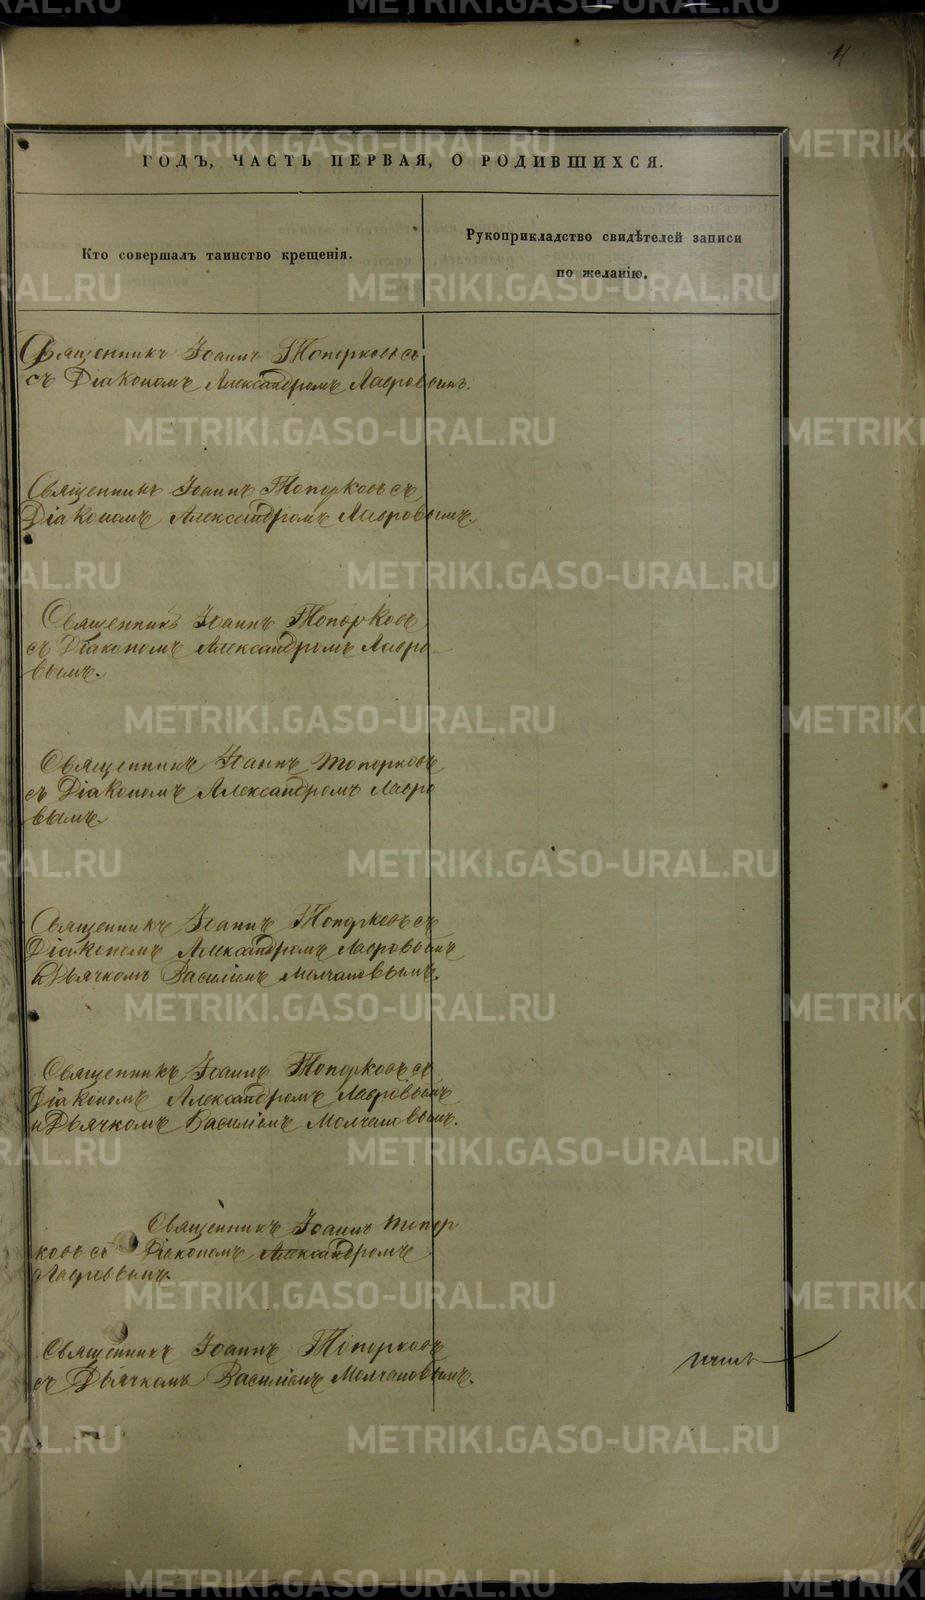 4
ГОДЪ, ЧАСТЬ ПЕРВАЯ, О РОДИВШИХСЯ.
Кто совершалъ таинство крещенія.
Рукоприкладство свидѣтелей записи
по желанію.
Священникъ Іоаннъ Топорковъ
съ Діакономъ Александромъ Лавровымъ.
Священникъ Іоаннъ Топорковъ съ
Діакономъ Александромъ Лавровымъ.
Священникъ Іоаннъ Топорковъ
съ Діакономъ Александромъ Лавро
вымъ.
Священникъ Іоаннъ Топорковъ
съ Діакономъ Александромъ Лавро
вымъ.
Священникъ Іоаннъ Топорковъ съ
Діакономъ Александромъ Лавровымъ
и Дьячкомъ Василіемъ Молчановымъ.
Священникъ Іоаннъ Топорковъ съ
Діакономъ Александромъ Лавровымъ
и Дьячкомъ Василіемъ Молчановымъ.
Священникъ Іоаннъ Топор
ковъ съ Діакономъ Александромъ
Лавровымъ.
Священникъ Іоаннъ Топорковъ
съ Дьячкомъ Василіемъ Молчановымъ.
METRIKI.GASO-URAL.RU